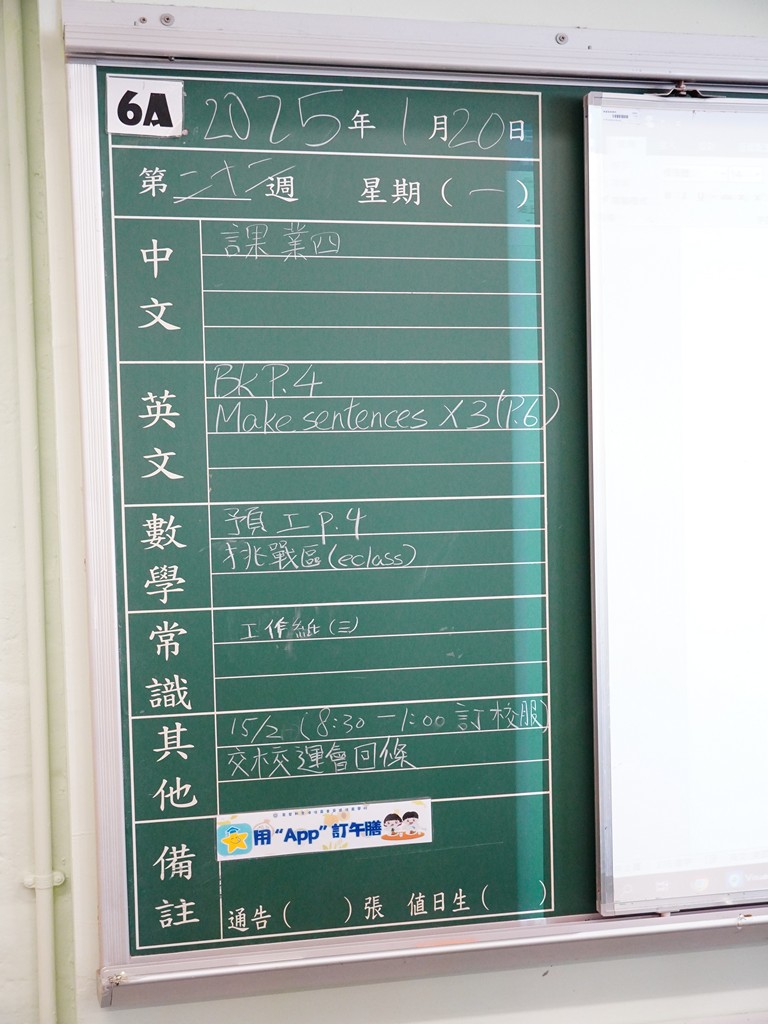 6A 2025年1月20日
第二十二週 星期(一)
中文
課業四
英文
Bk P.4
Make sentences X3 (P.6)
數學
預工 p.4
挑戰區(eclass)
常識
工作紙(三)
其他
15/2 (8:30 — 1:00 訂校服)
交校運會回條
備註
用“App”訂午膳
通告( )張 值日生( )